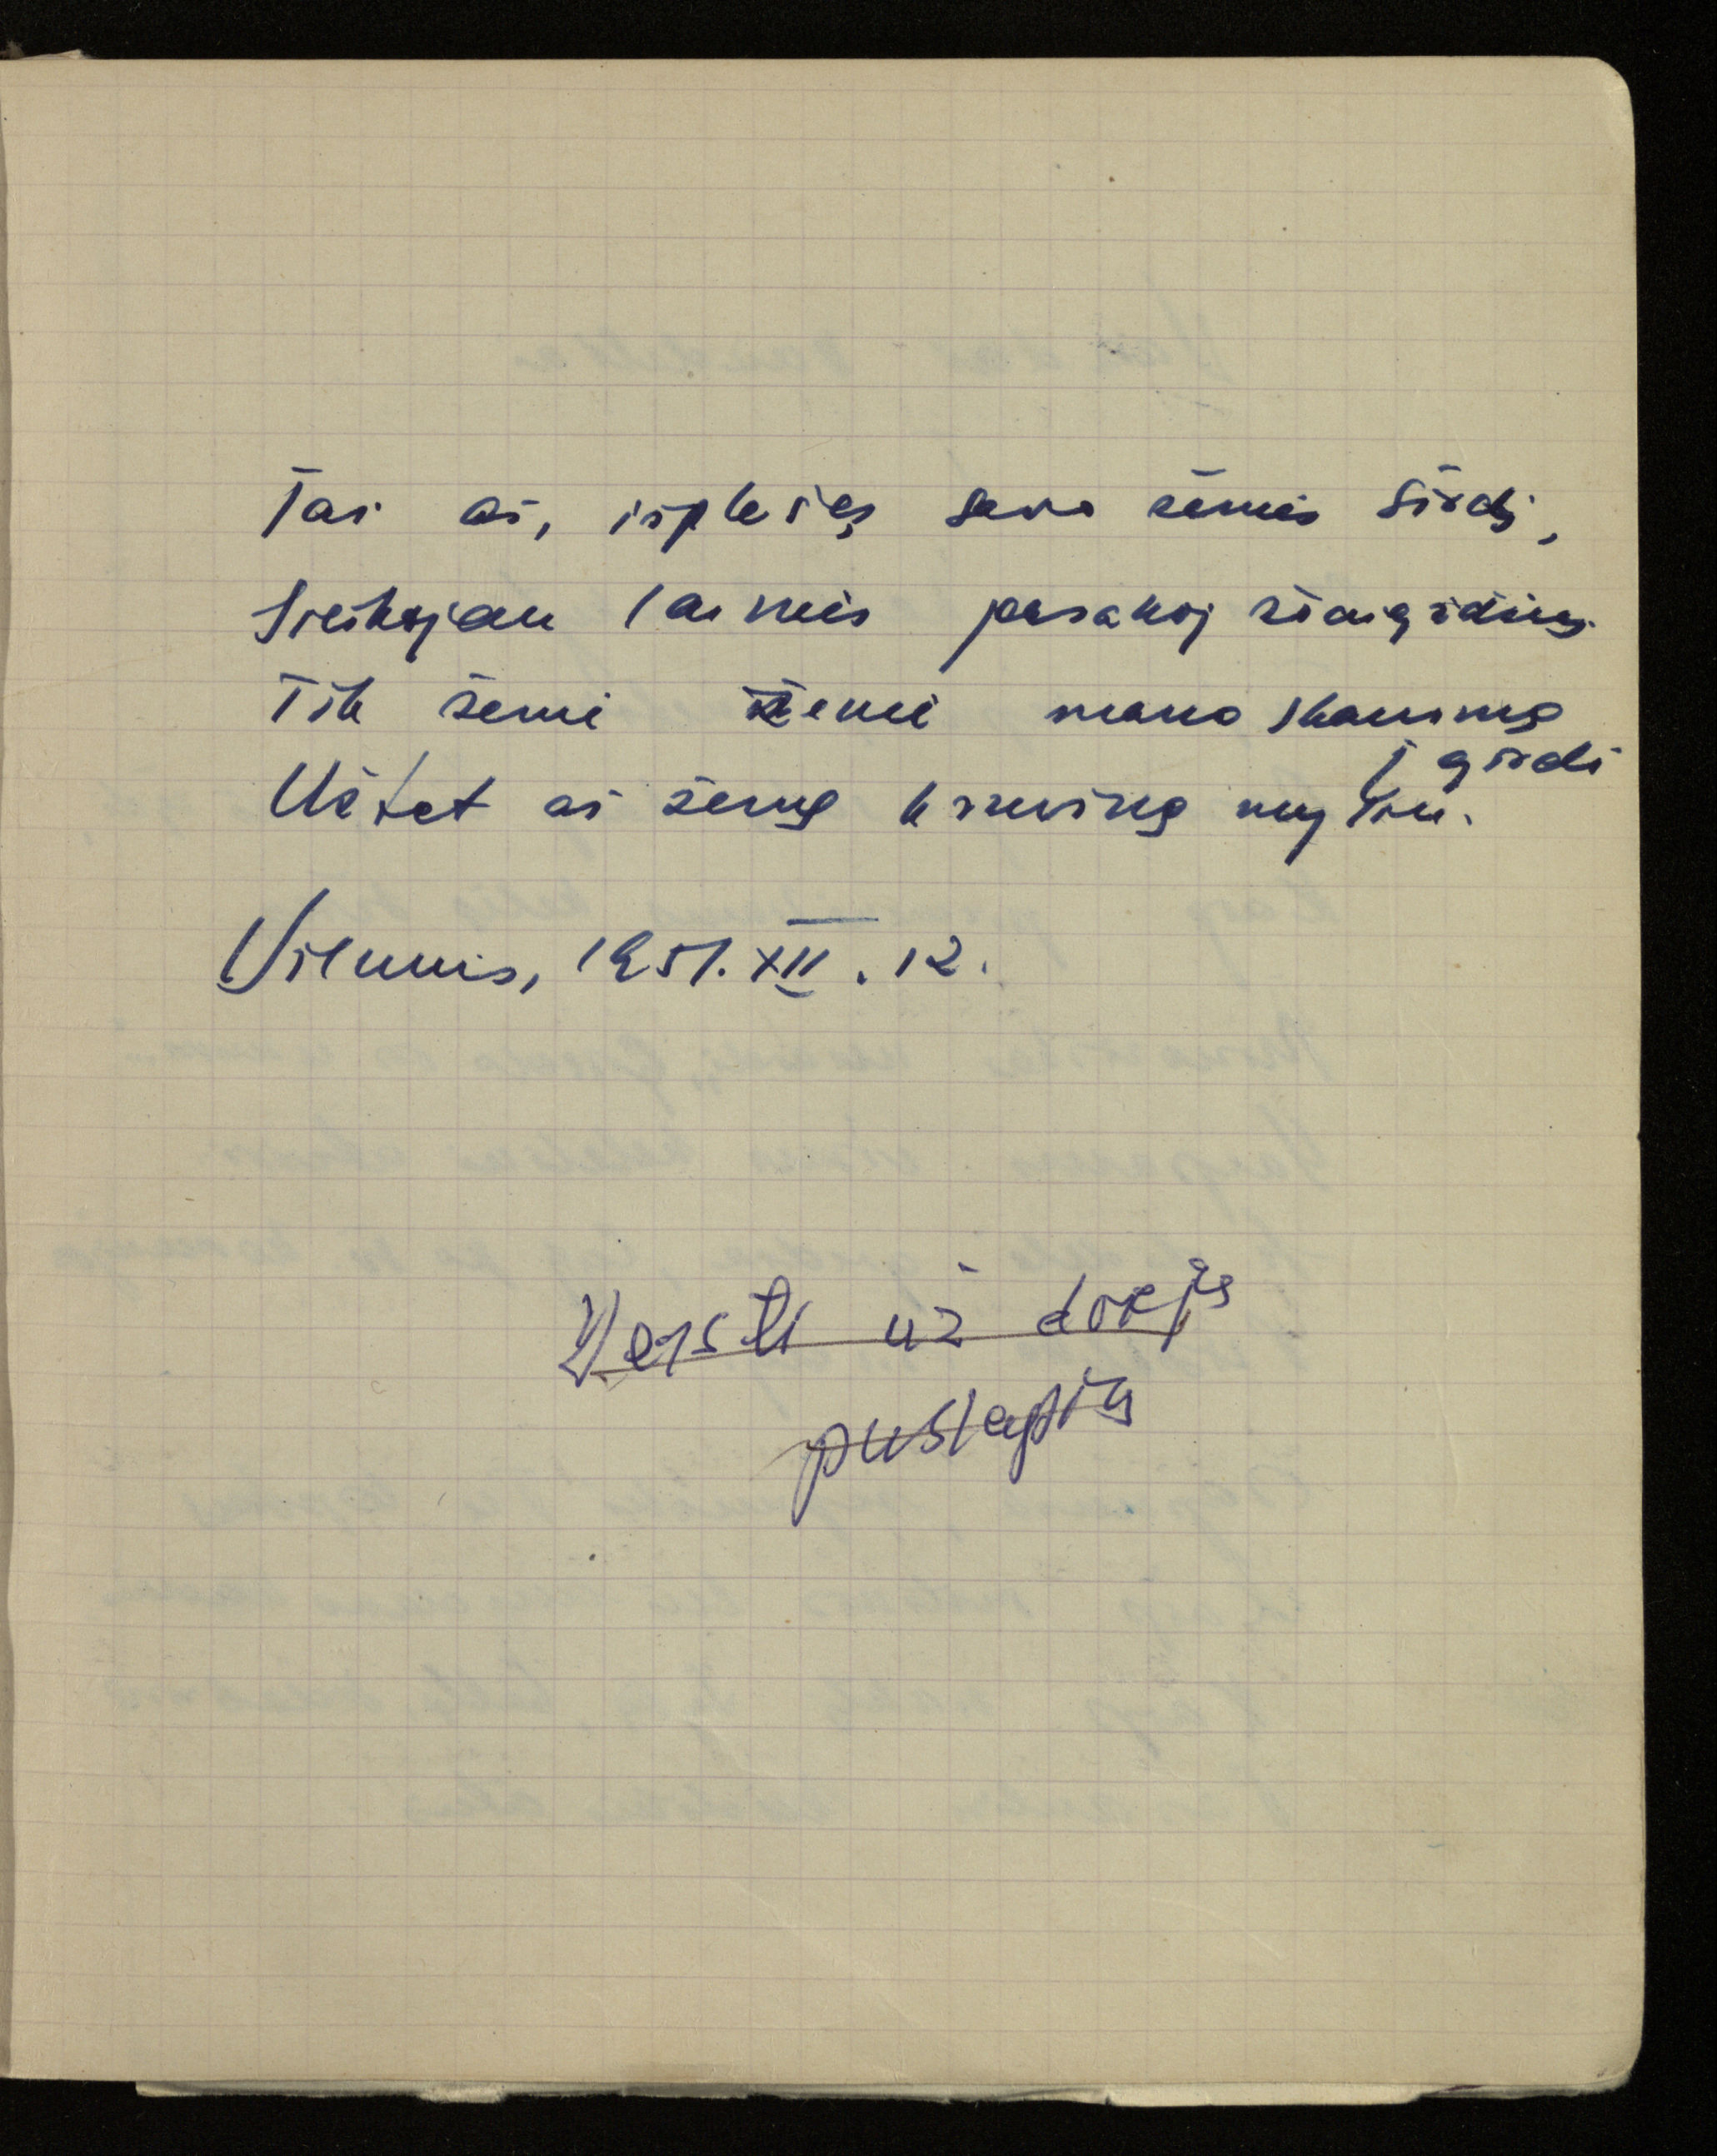 Tai aš, išplėšęs savo žemės širdį,
Ieškojau laimės pasakoj žvaigždžių.
Tik žemė žemė mano skausmą
įgirdi
Užtat aš žemę kruviną myliu.
Vilnius, 1951.XII.12.
Versti už dviejų
puslapių